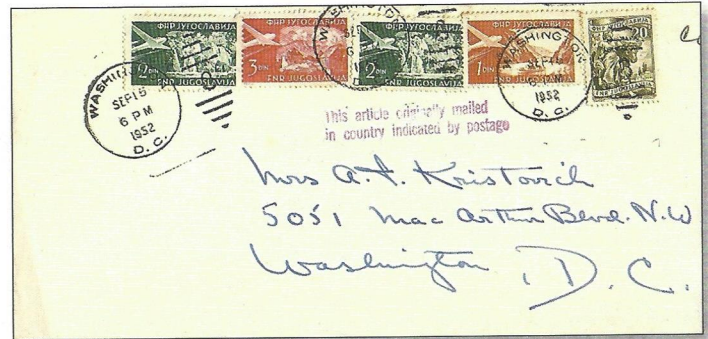 ФНР ЈУГОСЛАВИЈА
2 DIN
FNR JUGOSLAVIJA
ФНР ЈУГОСЛАВИЈА
3 DIN
FNR JUGOSLAVIJA
ФНР ЈУГОСЛАВИЈА
2 DIN
FNR JUGOSLAVIJA
ФНР ЈУГОСЛАВИЈА
1 DIN
FNR JUGOSLAVIJA
20
WASHINGTON
SEP 15
6 PM
1952
D. C.
WASHINGTON
SEP
6
WASHINGTON
SEP 15
6 PM
1952
D. C.
This article originally mailed
in country indicated by postage
Mrs A. I. Kristovich
5051 Mac Arthur Blvd. N.W
Washington, D. C.